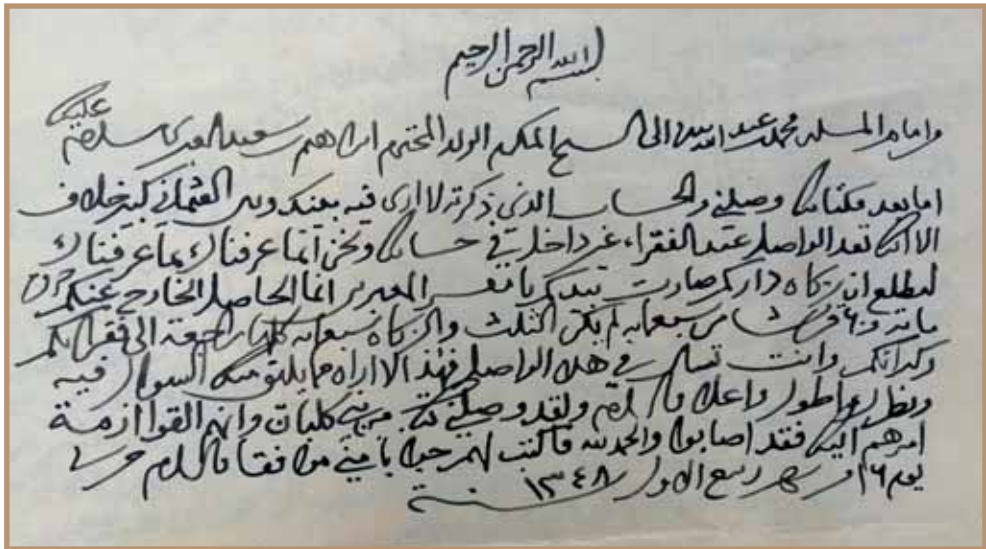 بسم الله الرحمن الرحيم
وامام المسلمين محمد بن عبدالله الى الشيخ المكرم الولد المحترم ابراهيم بن سعيد العبري سلام عليك
اما بعد فكتابك وصلني والحساب الذي ذكرته لا ارى فيه بينك وبين العثماني كبير خلاف
الا انك تعد الواصل عند الفقراء غير داخلة في حسابك ونحن انما عرفناك بما عرفناك
لتطلع ان زكاة داركم صارت بيدكم يا معشر العبريين انما الحاصل الخارج عنكم
مائة قرش من سبعمائة لم يكن الثلث والزكاة سبعمائة كلها راجعة الى فقرائكم
وكبرائكم وانت تسأل في هذا الواصل فهذا لا اراه مما يلتوجه السؤال فيه
ونظرك اطول واعلا والسلام ولقد وصلني كتاب من بني كلبان وانهم القوا ازمة
امرهم اليك فقد اصابوا والحمد لله فاكتب لهم مرحبا يا بني موافقا والسلام
يوم ١٦ من شهر ربيع الاول سنة ١٣٤٨